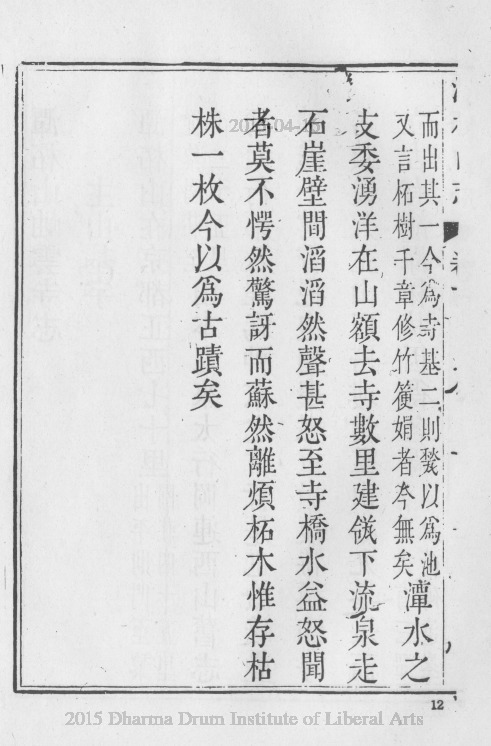 而出其一今為寺基二則甃以為池
又言柘樹千章修竹便娟者今無矣
潭水之
支委湧洋在山額去寺數里建瓴下流泉走
石崖壁間滔滔然聲甚怒至寺橋水益怒聞
者莫不愕然驚訝而蘇然離煩柘木惟存枯
株一枚今以為古蹟矣
12
2015 Dharma Drum Institute of Liberal Arts